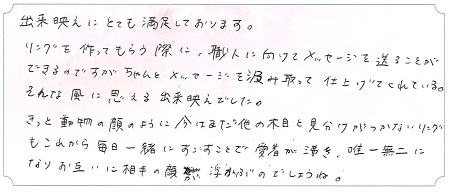 出来映えにとても満足しております。
リングを作ってもらう際に、職人に向けてメッセージを送ることが
できるのですがちゃんとメッセージを汲み取って仕上げてくれている。
そんな風に思える出来映えでした。
きっと動物の顔のように今はまだ他の木目と見分けがつかないリング
もこれから毎日一緒にすごすことで愛着が湧き、唯一無二に
なりお互いに相手の顔が浮かぶのでしょうね。